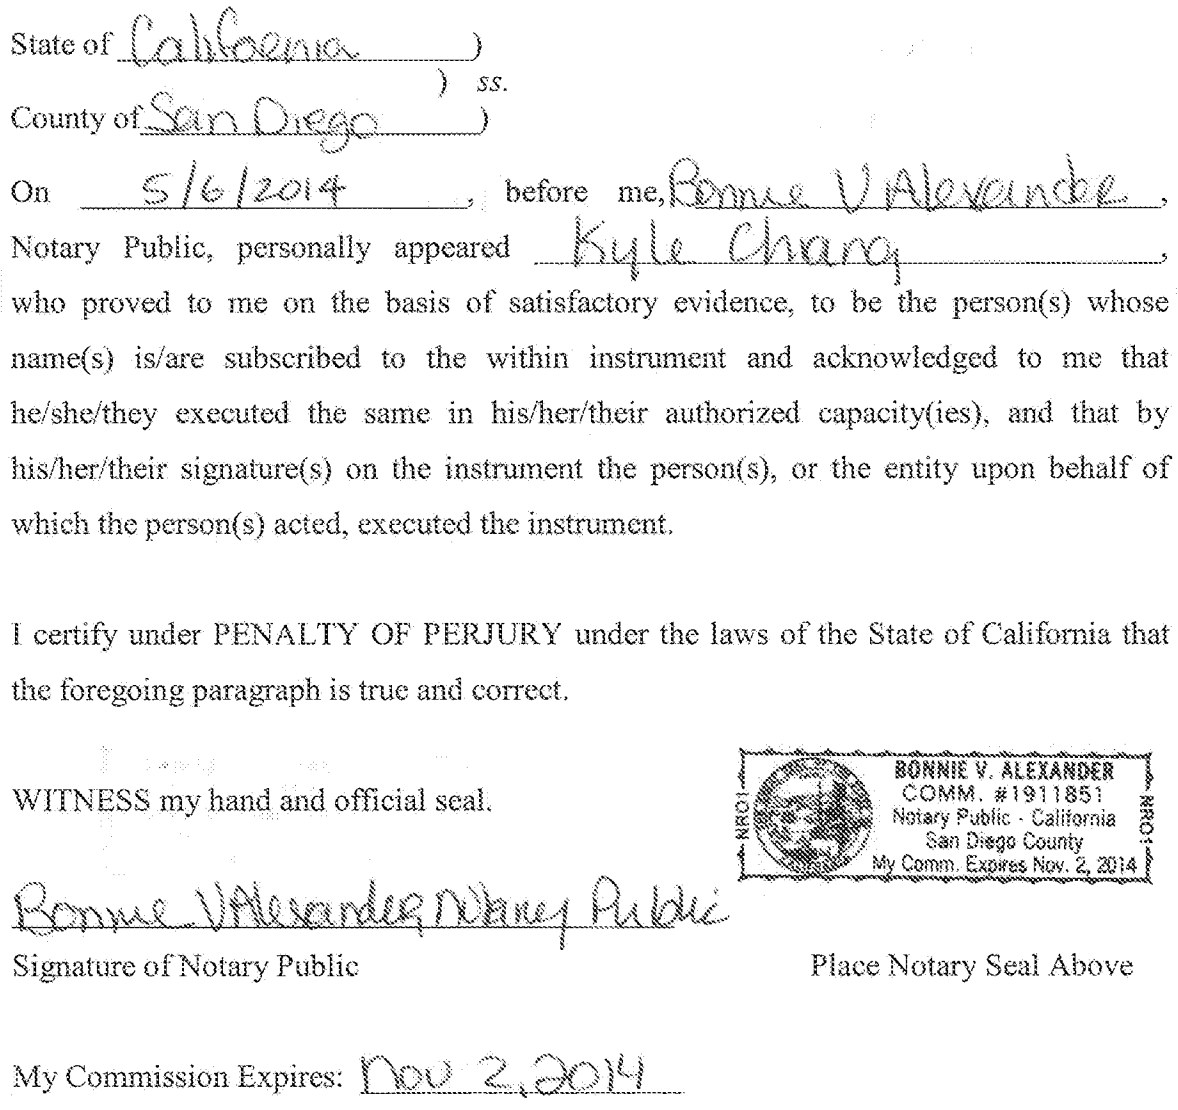 State of California )
) ss.
County of San Diego )
On 5/6/2014, before me, Bonnie V Alexander,
Notary Public, personally appeared Kyle Chang,
who proved to me on the basis of satisfactory evidence, to be the person(s) whose
name(s) is/are subscribed to the within instrument and acknowledged to me that
he/she/they executed the same in his/her/their authorized capacity(ies), and that by
his/her/their signature(s) on the instrument the person(s), or the entity upon behalf of
which the person(s) acted, executed the instrument.
I certify under PENALTY OF PERJURY under the laws of the State of California that
the foregoing paragraph is true and correct.
WITNESS my hand and official seal.
NRO1
BONNIE V. ALEXANDER
COMM. #1911851
Notary Public - California
San Diego County
My Comm. Expires Nov. 2, 2014
NRO1
Bonnie V Alexander, Notary Public
Signature of Notary Public
Place Notary Seal Above
My Commission Expires: Nov 2, 2014